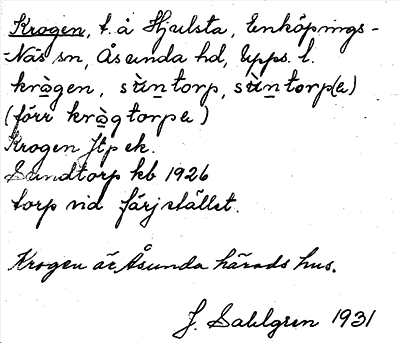 Krogen, t. å Hjulsta, Enköpings-
-Näs sn, Åsunda hd, Upps. l.
krò̱gen, sùn̲torp, sùn̲torp(a)
(förr krò̱gtorpa)
Krogen Jtp ek.
Sundtorp kb 1926
torp vid färjstället.
Krogen är Åsunda härads hus.
J. Sahlgren 1931